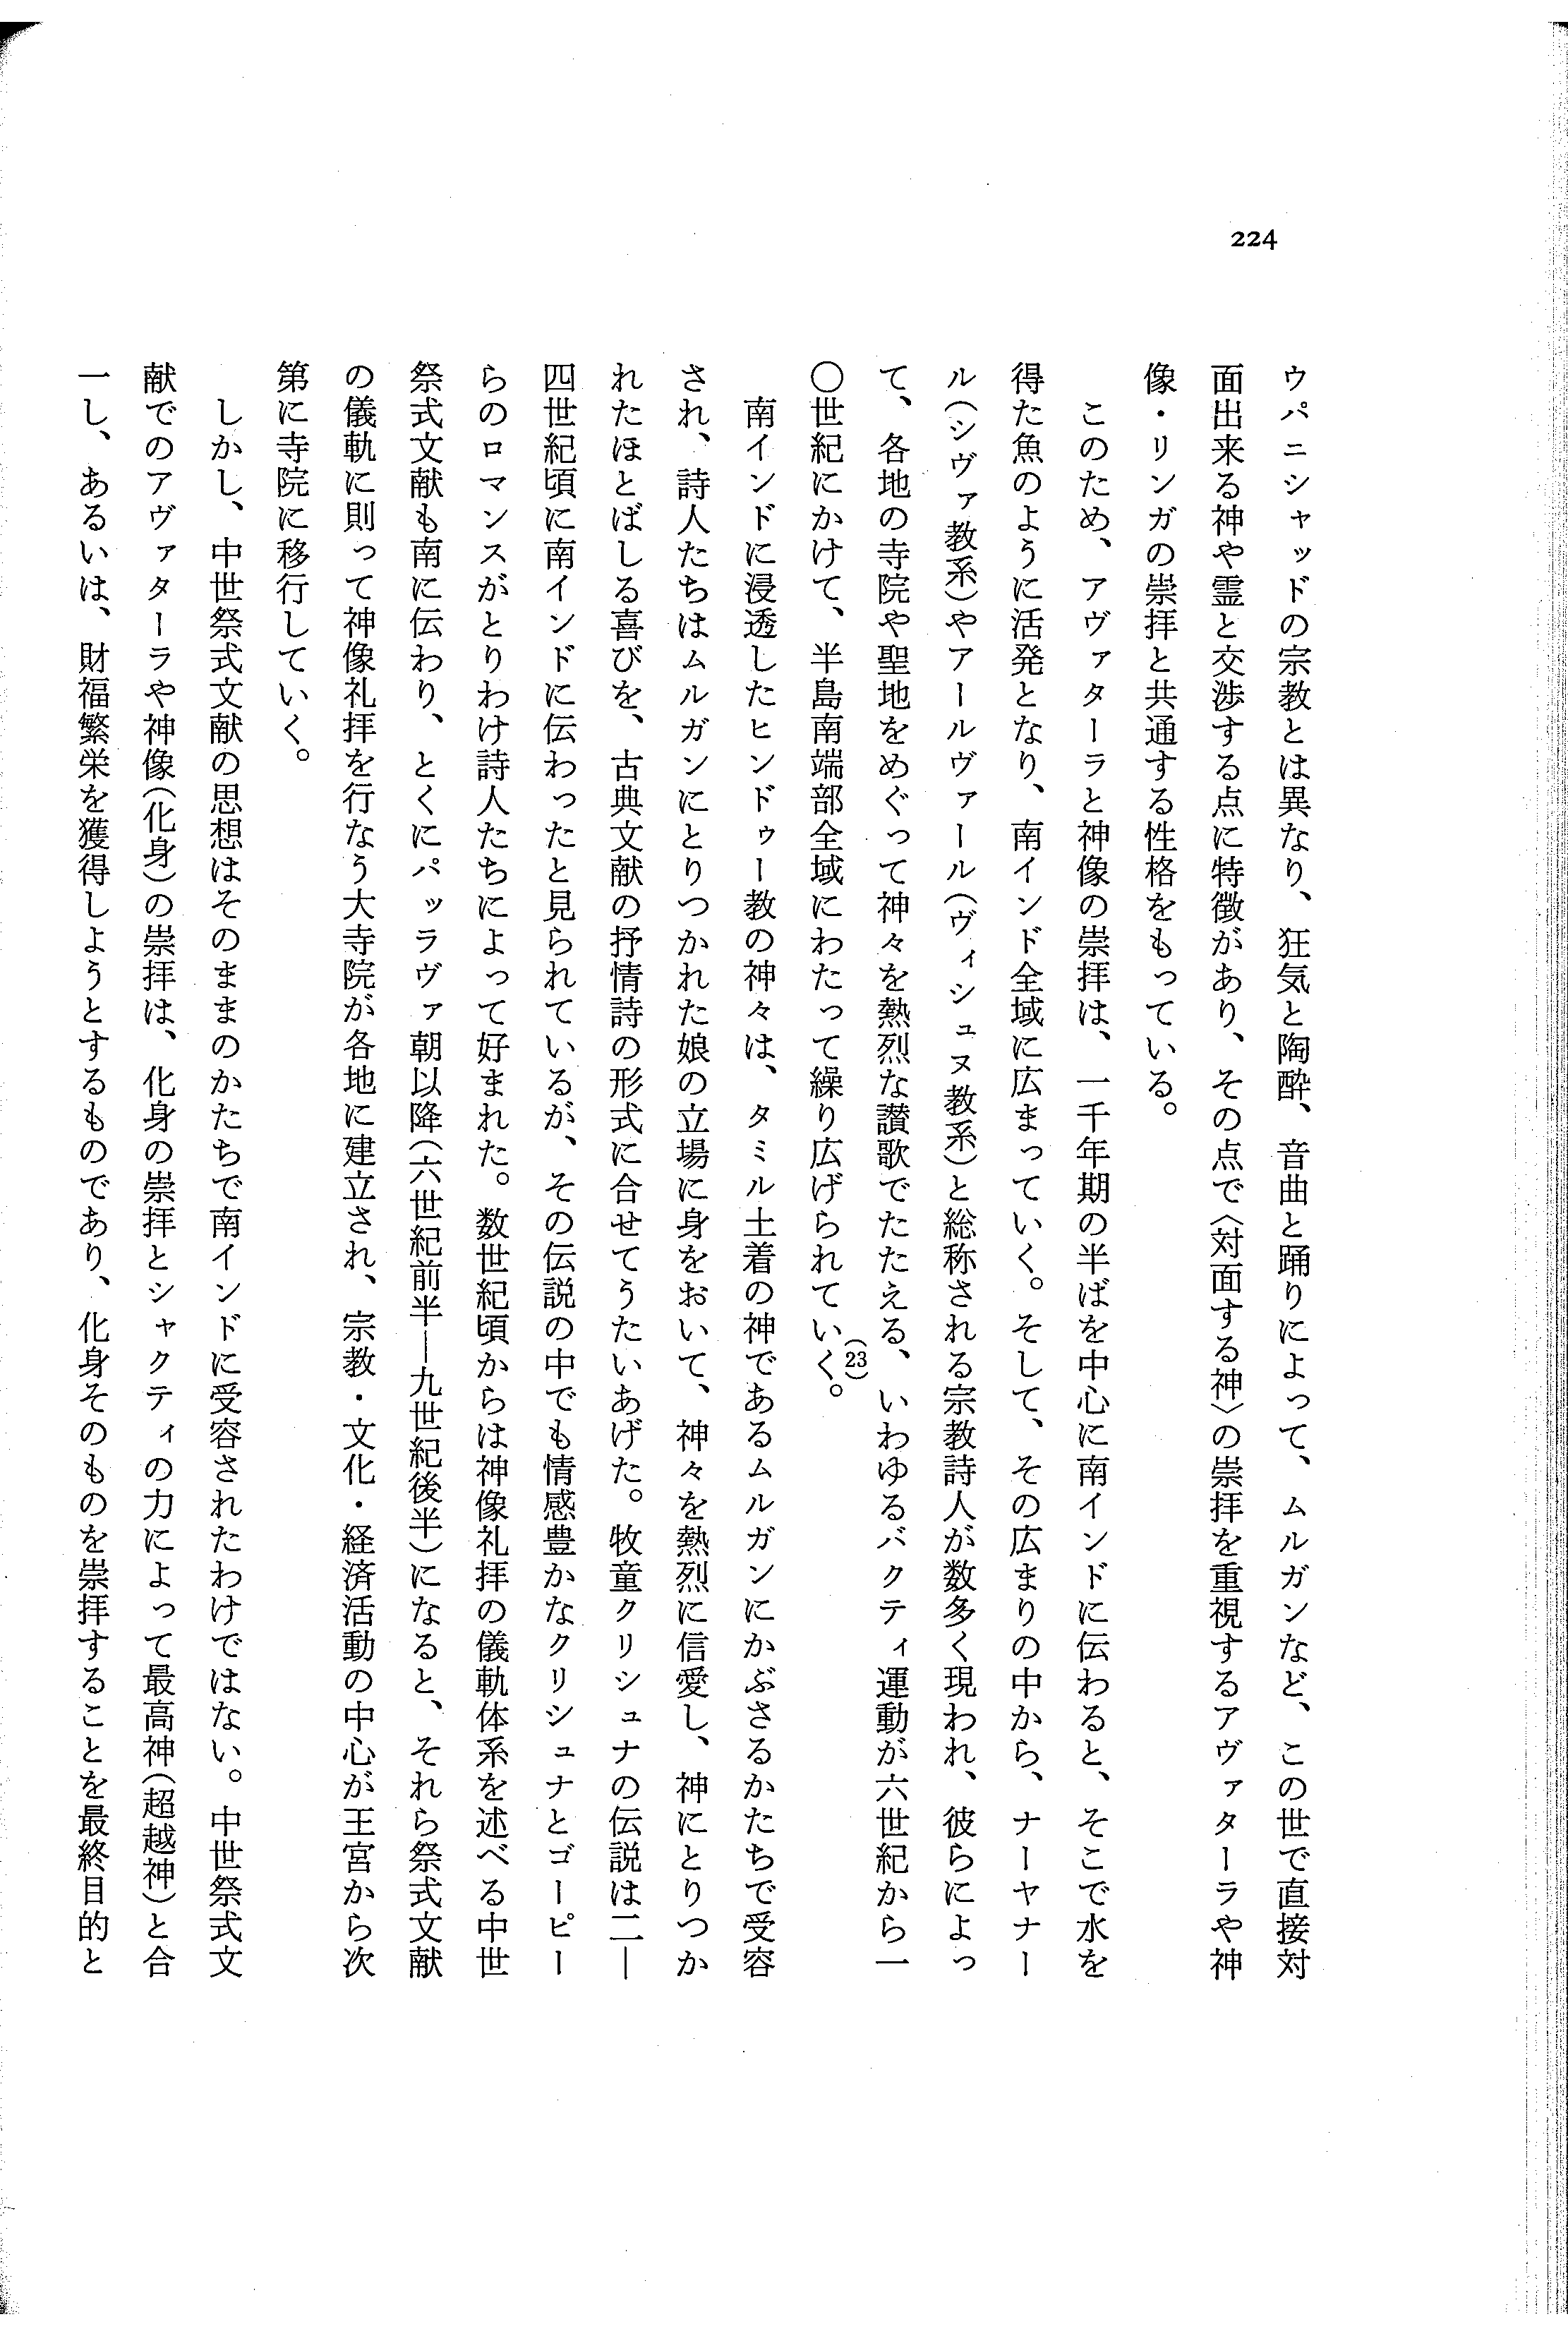 224
ウパニシャッドの宗教とは異なり、狂気と陶酔、音曲と踊りによって、ムルガンなど、この世で直接対
面出来る神や霊と交渉する点に特徴があり、その点で〈対面する神〉の崇拝を重視するアヴァターラや神
像・リンガの崇拝と共通する性格をもっている。
このため、アヴァターラと神像の崇拝は、一千年期の半ばを中心に南インドに伝わると、そこで水を
得た魚のように活発となり、南インド全域に広まっていく。そして、その広まりの中から、ナーヤナー
ル(シヴァ教系)やアールヴァール(ヴィシュヌ教系)と総称される宗教詩人が数多く現われ、彼らによっ
て、各地の寺院や聖地をめぐって神々を熱烈な讃歌でたたえる、いわゆるバクティ運動が六世紀から一
〇世紀にかけて、半島南端部全域にわたって繰り広げられていく(23)。
南インドに浸透したヒンドゥー教の神々は、タミル土着の神であるムルガンにかぶさるかたちで受容
され、詩人たちはムルガンにとりつかれた娘の立場に身をおいて、神々を熱烈に信愛し、神にとりつか
れたほとばしる喜びを、古典文献の抒情詩の形式に合せてうたいあげた。牧童クリシュナの伝説は二―
四世紀頃に南インドに伝わったと見られているが、その伝説の中でも情感豊かなクリシュナとゴーピー
らのロマンスがとりわけ詩人たちによって好まれた。数世紀頃からは神像礼拝の儀軌体系を述べる中世
祭式文献も南に伝わり、とくにパッラヴァ朝以降(六世紀前半―九世紀後半)になると、それら祭式文献
の儀軌に則って神像礼拝を行なう大寺院が各地に建立され、宗教・文化・経済活動の中心が王宮から次
第に寺院に移行していく。
しかし、中世祭式文献の思想はそのままのかたちで南インドに受容されたわけではない。中世祭式文
献でのアヴァターラや神像(化身)の崇拝は、化身の崇拝とシャクティの力によって最高神(超越神)と合
一し、あるいは、財福繁栄を獲得しようとするものであり、化身そのものを崇拝することを最終目的と